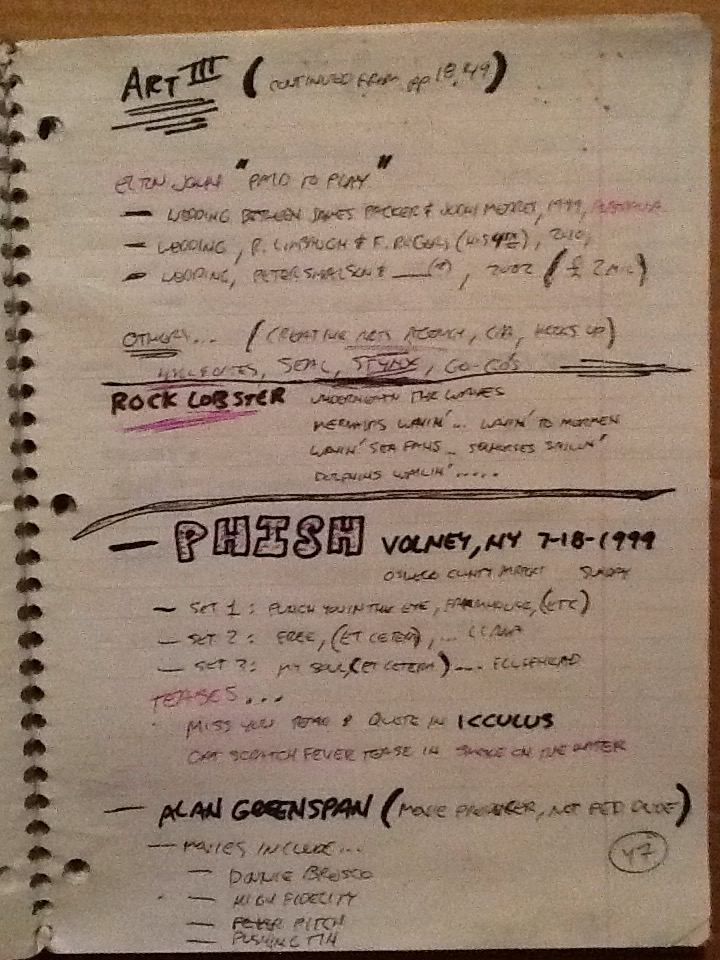 ART III (CONTINUED FROM pp 18, 49)
ELTON JOHN "PAID TO PLAY"
— WEDDING BETWEEN JAMES PACKER & JODHI, 1999, AUSTRALIA
— WEDDING, R. LIMBAUGH & F. ROGERS (HIS 4TH), 2010,
— WEDDING, PETER & ____(?), 2002 (£ 2 MIL)
OTHERS... (CREATIVE ARTS AGENCY, CAA, HOOKS UP)
SEAL, STYNX, GO-GO'S
ROCK LOBSTER UNDERNEATH THE WAVES
MERMAIDS WAVIN'... WAVIN' TO MERMEN
WAVIN' SEA FANS... SEAHORSES SAILIN'
DOLPHINS WAILIN'.....
— PHISH VOLNEY, NY 7-18-1999
OSWEGO COUNTY AIRPORT SUNDAY
— SET 1: PUNCH YOU IN THE EYE, FARMHOUSE, (ETC)
— SET 2: FREE, (ET CETERA), ... LLAMA
— SET 3: MY SOUL, (ET CETERA).... FLUFFHEAD
TEASES...
MISS YOU TEASE & QUOTE IN ICCULUS
CAT SCRATCH FEVER TEASE IN SMOKE ON THE WATER
— ALAN GREENSPAN (MOVIE PRODUCER, NOT FED DUDE)
— MOVIES INCLUDE...
— DONNIE BRASCO
— HIGH FIDELITY
— FEVER PITCH
— PUSHING TIN
47